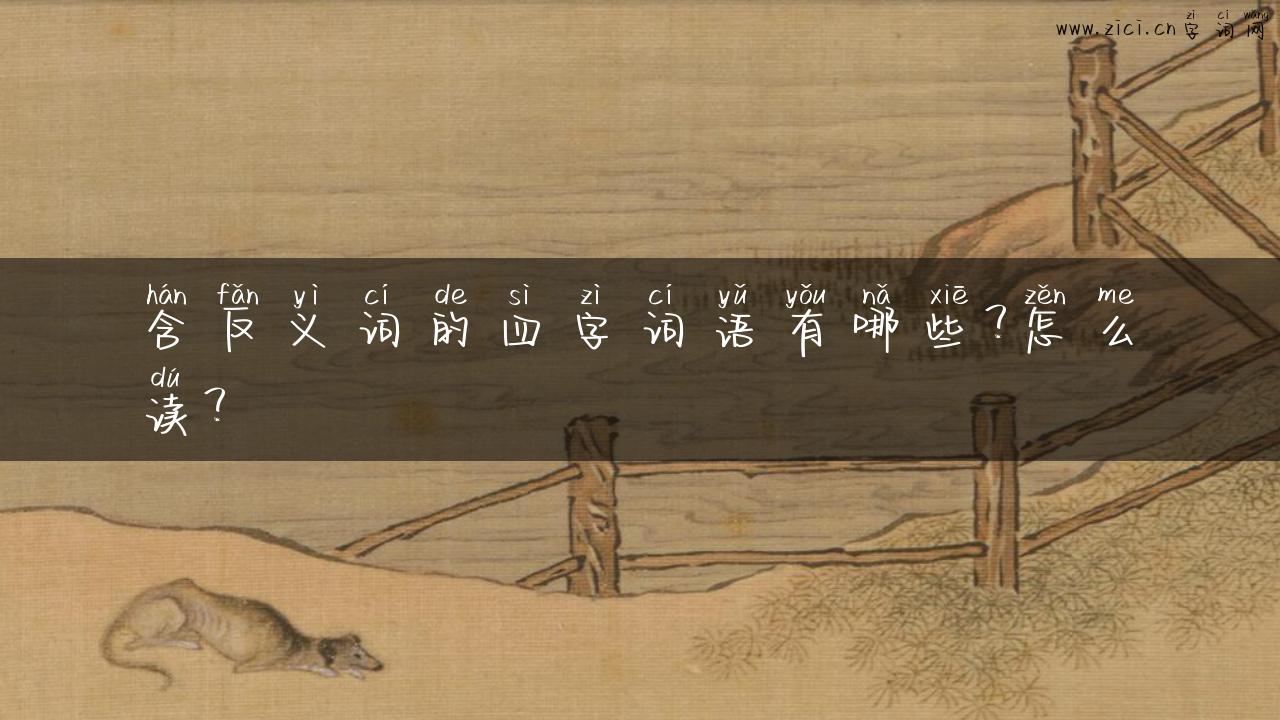 zì cí wǎng
www.zici.cn 字词网
hán fǎn yì cí de sì zì cí yǔ yǒu nǎ xiē zěn me
含反义词的四字词语有哪些?怎么
dú
读?